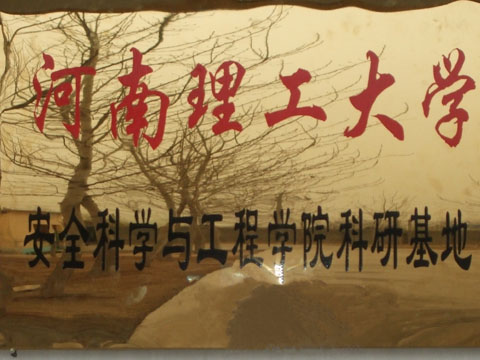 河南理工大学
安全科学与工程学院科研基地